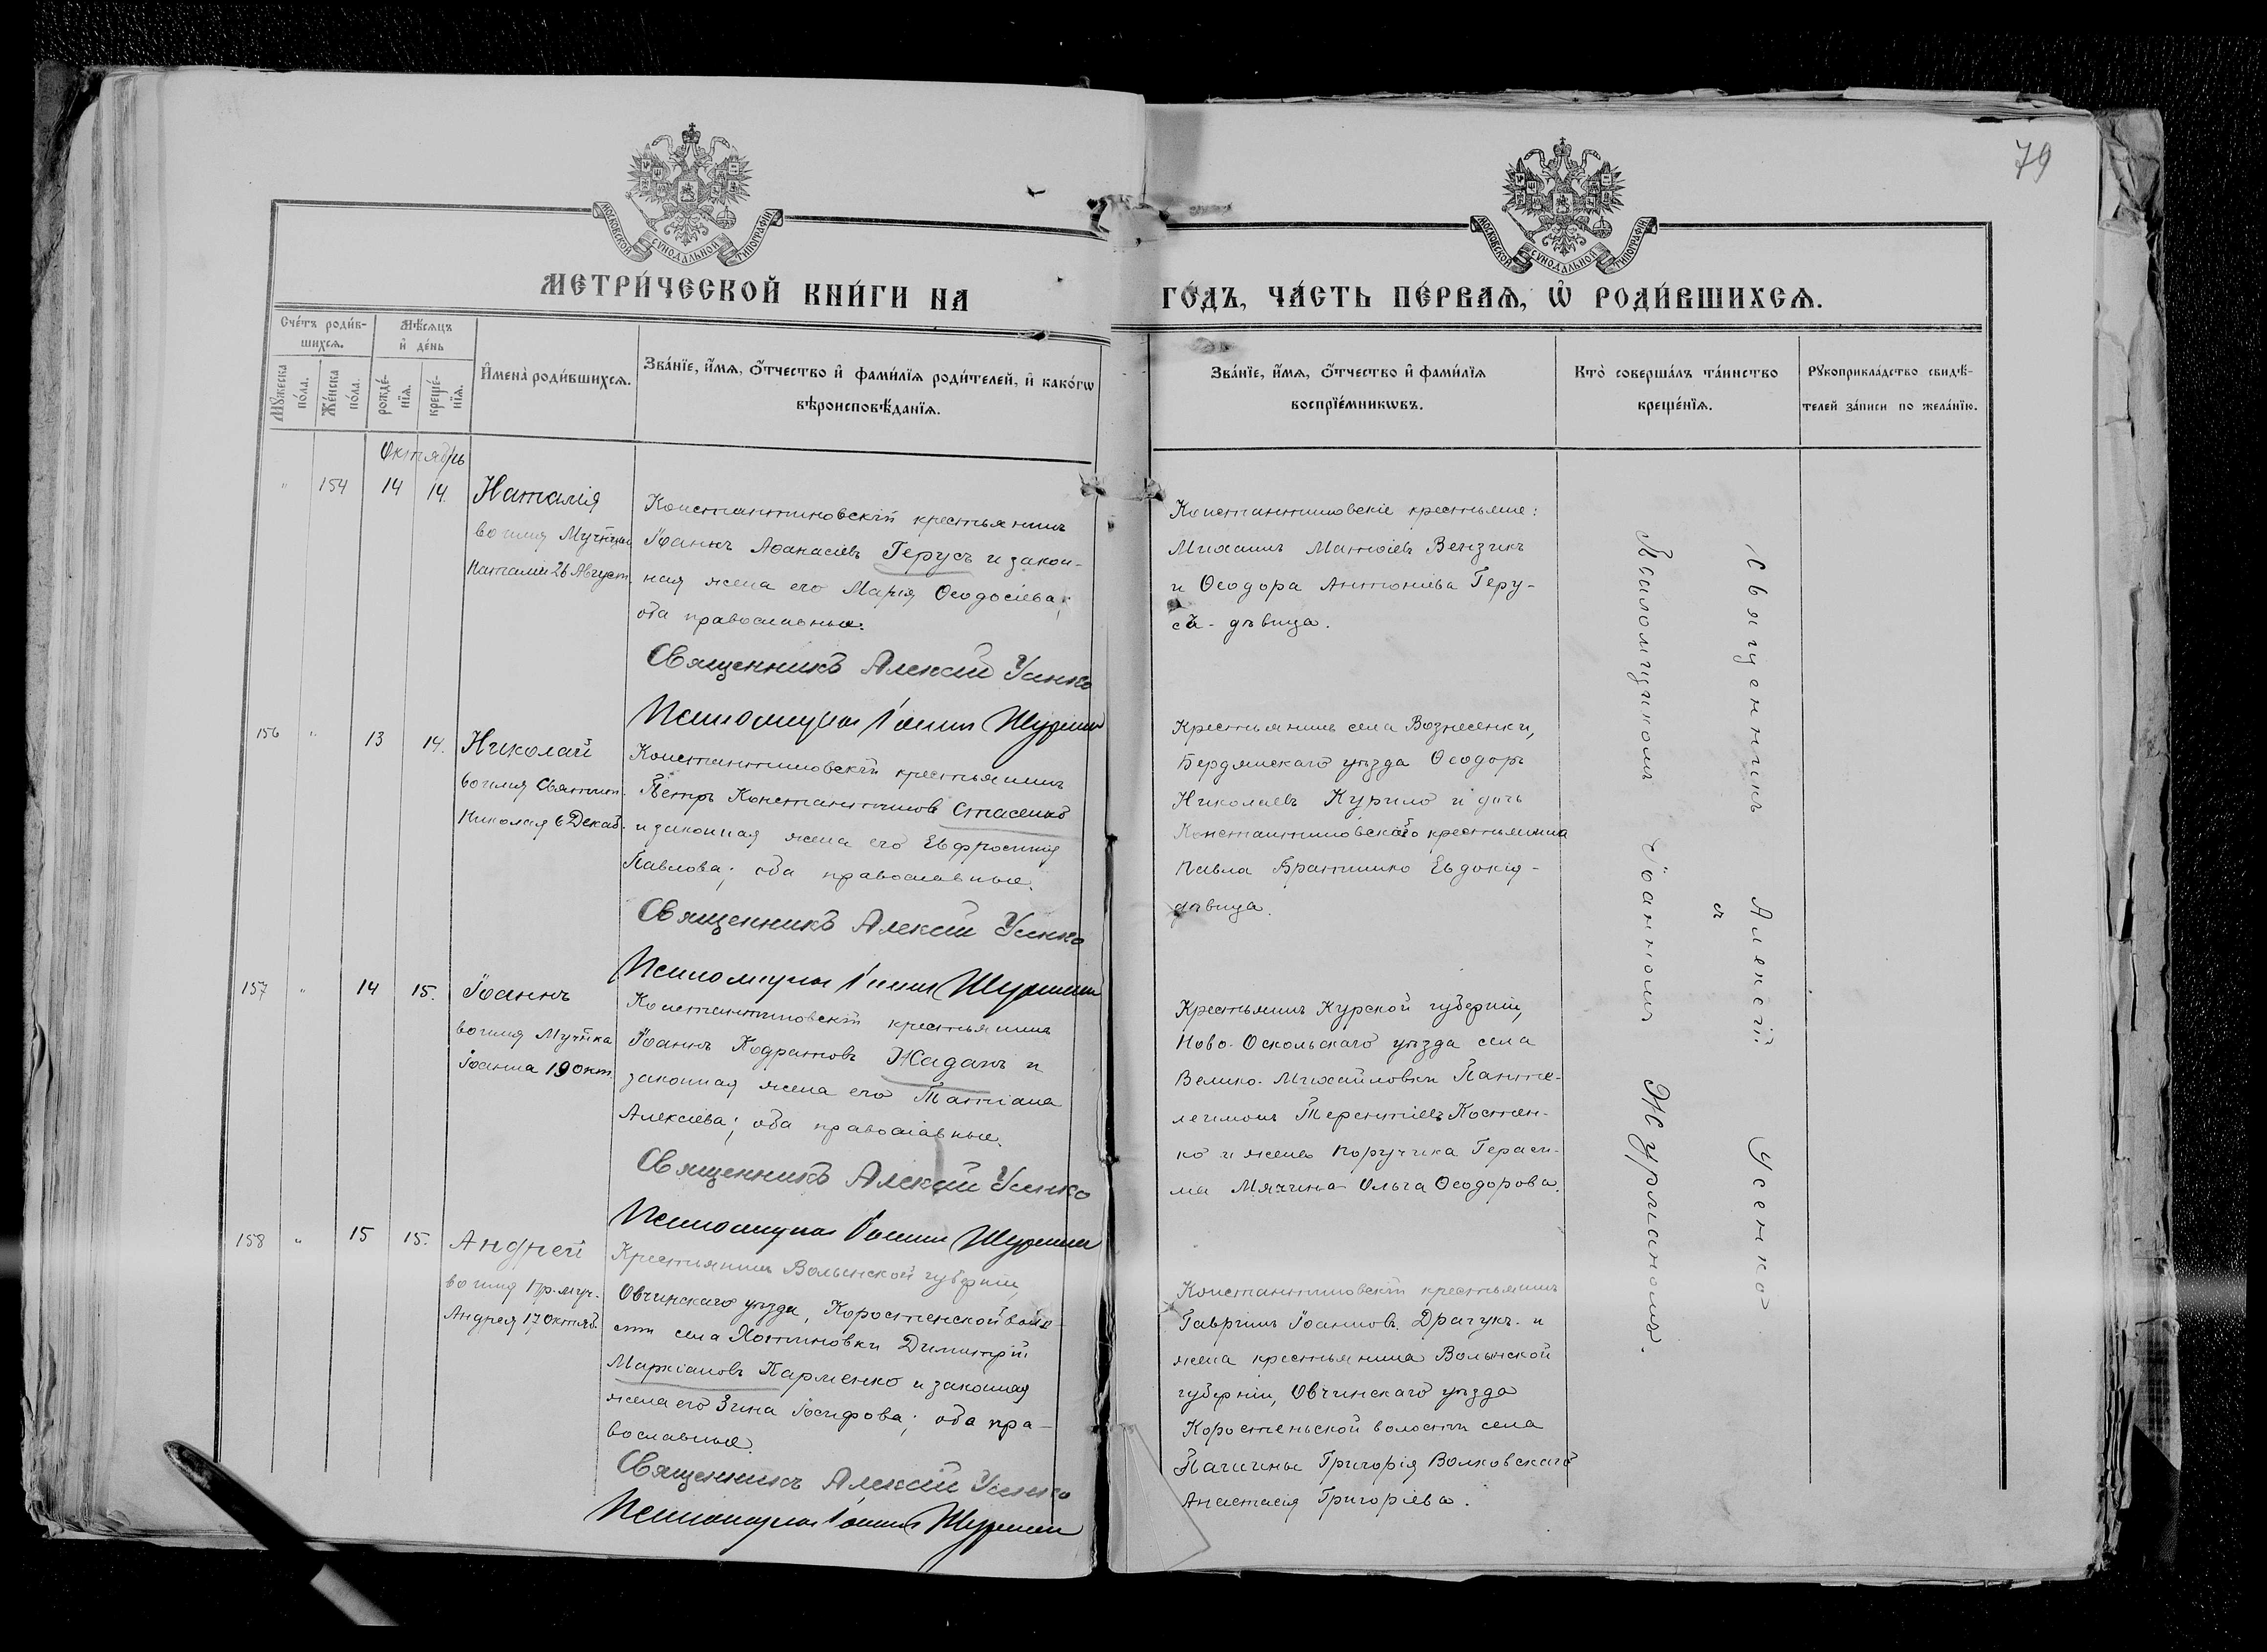 79
МОСКОВСКОЙ СѴНОДАЛЬНОЙ ТИПОГРАФІИ
МОСКОВСКОЙ СѴНОДАЛЬНОЙ ТИПОГРАФІИ
МЕТРИ́ЧЕСКОЙ КНИ́ГИ НА
ГО́ДЪ, ЧА́СТЬ ПЕ́РВАѦ, Ѡ҆ РОДИ́ВШИХСѦ.
Сче́тъ роди́в-
шихсѧ.
Мꙋ́жеска по́ла.
Же́нска по́ла.
Мѣ́сѧцъ
и҆ де́нь
рожде́-
нїѧ.
креще́-
нїѧ.
И҆мена̀ роди́вшихсѧ.
Зва́нїе, и҆́мѧ, ѻ҆́тчество и҆ фами́лїѧ роди́телей, и҆ како́гѡ
вѣроисповѣ́данїѧ.
Зва́нїе, и҆́мѧ, ѻ҆́тчество и҆ фами́лїѧ
воспрїе́мникѡвъ.
Кто̀ соверша́лъ та́инство
креще́нїѧ.
Рꙋкоприкла́дство свидѣ́-
телей за́писи по жела́нїю.
Октябрь
" 154 14 14.
Наталія
во имя Муч-цы
Наталіи 26 Август.
Константиновскій крестьянинъ
Іоаннъ Аѳанасіевъ Герусъ и закон-
ная жена его Марія Ѳеодосіева;
оба православные.
Священникъ Алексій Усенко
Псаломщикъ Іоаннъ Журманъ
Константиновскіе крестьяне:
Михаилъ Матѳіевъ Вензикъ
и Ѳеодора Антоніева Геру-
съ - дѣвица.
156 " 13 14.
Николай
во имя Святит.
Николая 6 Декаб.
Константиновскій крестьянинъ
Петръ Константиновъ Стасенко
и законная жена его Евфросинія
Павлова; оба православные.
Священникъ Алексій Усенко
Псаломщикъ Іоаннъ Журманъ
Крестьянинъ села Вознесенки,
Бердянскаго уѣзда Ѳеодоръ
Николаевъ Курило и дочь
Константиновскаго крестьянина
Павла Братишко Евдокія -
дѣвица.
157 " 14 15.
Іоаннъ
во имя Муч-ка
Іоанна 19 Окт.
Константиновскій крестьянинъ
Іоаннъ Кодратовъ Жаданъ и
законная жена его Татіана
Алексіева; оба православные.
Священникъ Алексій Усенко
Псаломщикъ Іоаннъ Журманъ
Крестьянинъ Курской губерніи,
Ново-Оскольскаго уѣзда села
Велико-Михайловки Панте-
леимонъ Терентіевъ Костен-
ко и жена поручика Гераси-
ма Мячина Ольга Ѳеодорова.
158 " 15 15.
Андрей
во имя Пр. муч.
Андрея 17 Октяб.
Крестьянинъ Волынской губерніи,
Овчинскаго уѣзда, Коростенской воло-
сти села Хотиновки Димитрій
Маркіановъ Пархменко и законная
жена его Зина Іосифова; оба пра-
вославные.
Священникъ Алексій Усенко
Псаломщикъ Іоаннъ Журманъ
Константиновскій крестьянинъ
Гавріилъ Іоанновъ Драчукъ и
жена крестьянина Волынской
губерніи, Овчинскаго уѣзда
Коростеньской волости села
Пашины Григорія Волковскаго
Анастасія Григоріева.
Священникъ Алексій Усенко
съ
Псаломщикомъ Іоанномъ Журманомъ.